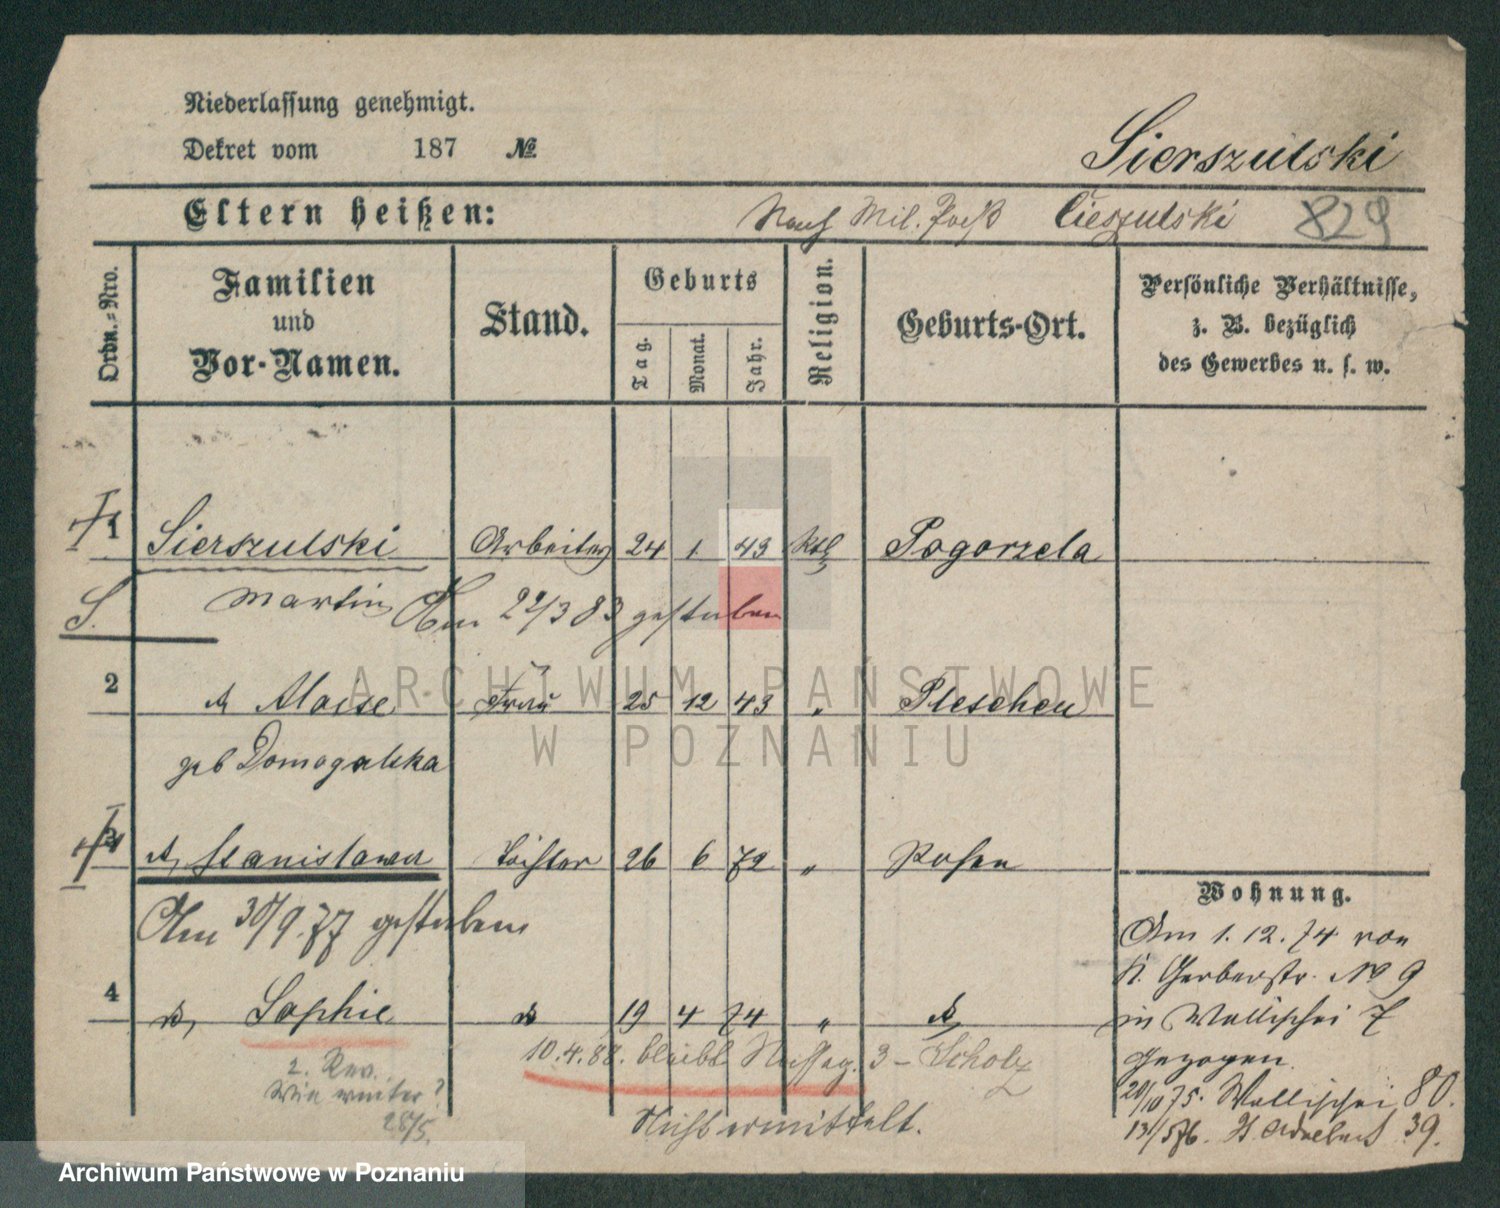 Niederlassung genehmigt.
Dekret vom 187 №
Sierszulski
Eltern heißen:
Nach Mil. Paß Cieszulski 829
Ordn.-Nro.
Familien
und
Vor-Namen.
Stand.
Geburts
Tag.
Monat.
Jahr.
Religion.
Geburts-Ort.
Persönliche Verhältnisse,
z. B. bezüglich
des Gewerbes u. s. w.
1 Sierszulski Arbeiter 24 1 43 Kath Pogorzela
S. Martin Am 22/3 83 gestorben
2 Aloise Frau 25 12 43 " Pleschen
geb Domogalska
3 Stanislawa Tochter 26 6 72 " Posen
Am 30/9.77 gestorben
4 Sophie 19 4 74 "
10.4.88. bleibt 3 - Scholz
2. Rev.
Wie weiter?
28/5.
Nicht ermittelt.
Wohnung.
Am 1. 12. 74 von
Kl. Gerberstr. No 9
in Wallischei 7
gezogen.
20/10 75. Wallischei 80.
13/5 76. St. Adalbert 39.
ARCHIWUM PAŃSTWOWE
W POZNANIU
Archiwum Państwowe w Poznaniu